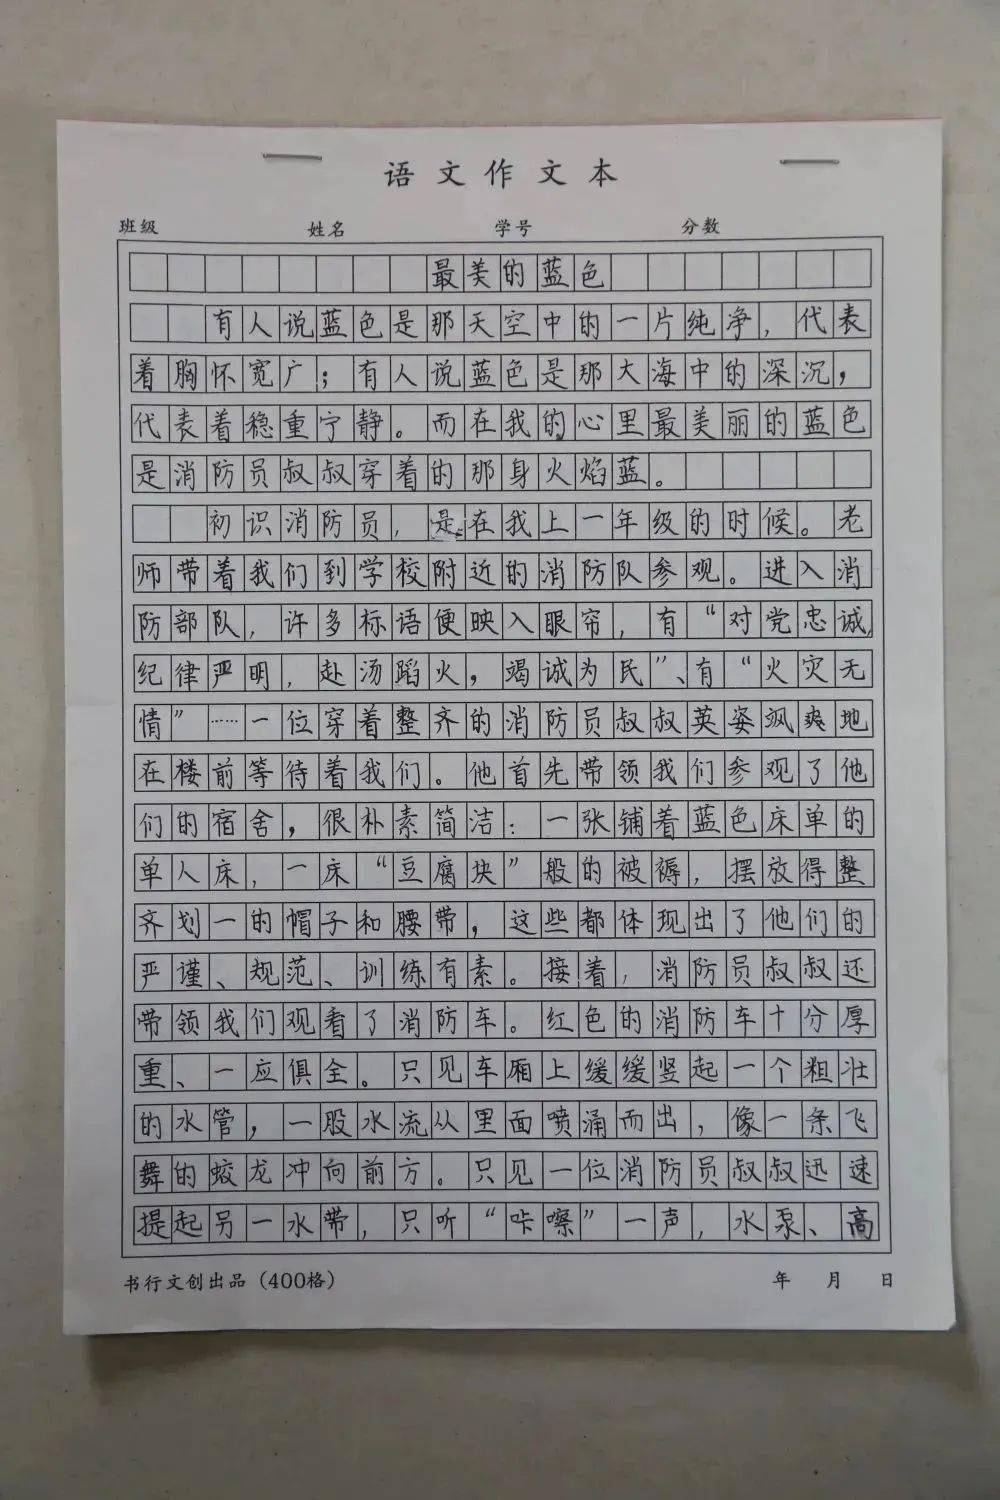 语文作文本
班级 姓名 学号 分数
最美的蓝色
有人说蓝色是那天空中的一片纯净，代表
着胸怀宽广；有人说蓝色是那大海中的深沉，
代表着稳重宁静。而在我的心里最美丽的蓝色
是消防员叔叔穿着的那身火焰蓝。
初识消防员，是在我上一年级的时候。老
师带着我们到学校附近的消防队参观。进入消
防部队，许多标语便映入眼帘，有“对党忠诚，
纪律严明，赴汤蹈火，竭诚为民”、有“火灾无
情”……一位穿着整齐的消防员叔叔英姿飒爽地
在楼前等待着我们。他首先带领我们参观了他
们的宿舍，很朴素简洁：一张铺着蓝色床单的
单人床，一床“豆腐块”般的被褥，摆放得整
齐划一的帽子和腰带，这些都体现出了他们的
严谨、规范、训练有素。接着，消防员叔叔还
带领我们观看了消防车。红色的消防车十分厚
重、一应俱全。只见车厢上缓缓竖起一个粗壮
的水管，一股水流从里面喷涌而出，像一条飞
舞的蛟龙冲向前方。只见一位消防员叔叔迅速
提起另一水带，只听“咔嚓”一声，水泵、高
书行文创出品（400格） 年 月 日